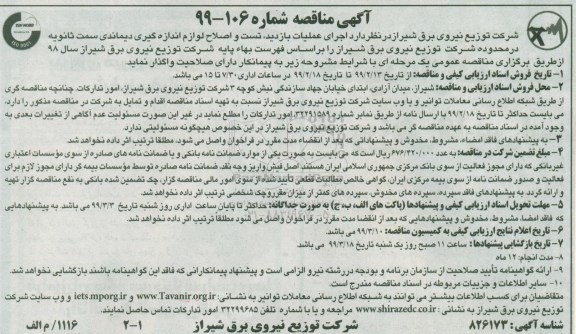 آگهی مناقصه شماره ۱۰۶-۹۹
شرکت توزیع نیروی برق شیراز در نظر دارد اجرای عملیات بازدید، تست و اصلاح لوازم اندازه گیری دیماندی سمت ثانویه
در محدوده شرکت توزیع نیروی برق شیراز را براساس فهرست بهاء پایه شرکت توزیع نیروی برق شیراز سال ۹۸
از طریق برگزاری مناقصه عمومی یک مرحله ای با شرایط مشروحه زیر به پیمانکار دارای صلاحیت واگذار نماید.
۱- تاریخ فروش اسناد ارزیابی کیفی و مناقصه: از تاریخ ۹۹/۲/۱۳ تا تاریخ ۹۹/۲/۱۸ در ساعات اداری ۷/۳۰ تا ۱۵ می باشد.
۲- محل فروش اسناد ارزیابی و مناقصه: شیراز، میدان آزادی، ابتدای خیابان جهاد سازندگی نبش کوچه ۳ شرکت توزیع نیروی برق شیراز، امور تدارکات. چنانچه مناقصه گری
از طریق شبکه اطلاع رسانی معاملات توانیر و یا وب سایت شرکت توزیع نیروی برق شیراز نسبت به تهیه اسناد مناقصه اقدام و تمایل به شرکت در مناقصه مذکور را دارد،
می بایست حداکثر تا تاریخ ۹۹/۲/۱۸ با ارسال نامه از طریق نمابر شماره ۳۲۲۹۱۵۸۹ امور تدارکات را مطلع نماید در غیر این صورت مسئولیت عدم آگاهی از تغییرات بعدی به
وجود آمده در اسناد مناقصه به عهده مناقصه گر می باشد و شرکت توزیع نیروی برق شیراز در این خصوص هیچگونه مسئولیتی ندارد.
۳- پیشنهادهای فاقد امضاء، مشروط، مخدوش و پیشنهاداتی که بعد از انقضاء مدت مقرر در فراخوان واصل می شود، مطلقاً ترتیب اثر داده نخواهد شد.
۴- مبلغ تضمین شرکت در مناقصه: به عدد ۶۷۶/۲۲۰/۰۰۰ ریال است که می بایست به صورت یکی از موارد ضمانت نامه بانکی و یا ضمانت نامه های صادره از سوی مؤسسات اعتباری
غیربانکی که دارای مجوز فعالیت از سوی بانک مرکزی جمهوری اسلامی ایران هستند، اصل فیش واریز وجه نقد، ضمانت نامه صادره توسط مؤسسات بیمه گر دارای مجوز لازم برای
فعالیت و صدور ضمانت نامه از سوی بیمه مرکزی ایران، گواهی خالص مطالبات قطعی تأیید شده از سوی امور مالی مناقصه گزار، چک تضمین شده بانکی به نفع مناقصه گزار تهیه
و ارائه گردد. به پیشنهادهای فاقد سپرده، سپرده های مخدوش، سپرده های کمتر از میزان مقرر و چک شخصی ترتیب اثر داده نخواهد شد.
۵- مهلت تحویل اسناد ارزیابی کیفی و پیشنهادها (پاکت های الف، ب، ج) به صورت جداگانه: حداکثر تا پایان ساعت اداری روز شنبه تاریخ ۹۹/۳/۳ می باشد. به پیشنهادهایی
که فاقد امضا، مشروط، مخدوش و پیشنهادهایی که بعد از انقضا مدت مقرر در فراخوان واصل می شود مطلقاً ترتیب اثر داده نخواهد شد.
۶- تاریخ اعلام نتایج ارزیابی کیفی به کمیسیون مناقصه: ۹۹/۳/۱۰ می باشد.
۷- تاریخ بازگشایی پیشنهادها: ساعت ۱۱ صبح روز یک شنبه تاریخ ۹۹/۳/۱۸ می باشد.
۸- مدت انجام: ۱۲ ماه
۹- ارائه گواهینامه تأیید صلاحیت از سازمان برنامه و بودجه در رشته نیرو الزامی است و پیشنهاد پیمانکارانی که فاقد این گواهینامه باشند بازگشایی نخواهد شد.
۱۰- سایر اطلاعات و جزئیات مربوطه در اسناد مناقصه مندرج است.
متقاضیان برای کسب اطلاعات بیشتر می توانند به شبکه اطلاع رسانی معاملات توانیر به نشانی: www.Tavanir.org.ir و iets.mporg.ir و وب سایت شرکت
توزیع نیروی برق شیراز به نشانی: www.shirazedc.co.ir مراجعه و یا با شماره تلفن ۳۲۲۹۹۶۸۵ تماس حاصل نمایند.
شناسه آگهی: ۸۲۶۱۷۳ شرکت توزیع نیروی برق شیراز ۲-۱ ۱۱۱۶/ م الف